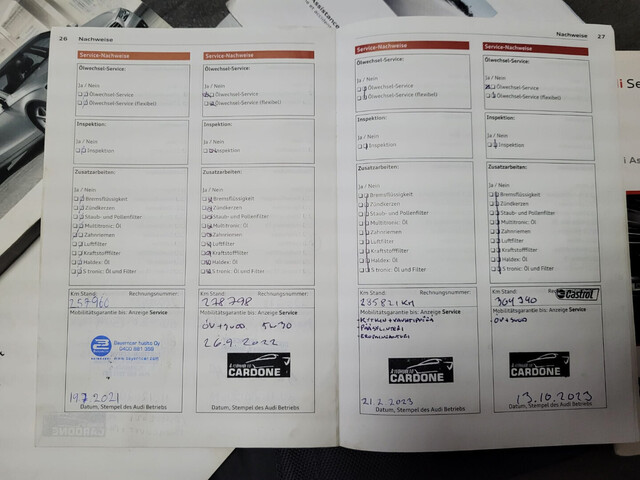 26 Nachweise
Service-Nachweise
Ölwechsel-Service:
Ja / Nein
Ölwechsel-Service
Ölwechsel-Service (flexibel)
Inspektion:
Ja / Nein
Inspektion
Zusatzarbeiten:
Ja / Nein
Bremsflüssigkeit
Zündkerzen
Staub- und Pollenfilter
Multitronic: Öl
Zahnriemen
Luftfilter
Kraftstofffilter
Haldex: Öl
S tronic: Öl und Filter
Km Stand: Rechnungsnummer:
257966
Mobilitätsgarantie bis: Anzeige Service
19.7 2021
Datum, Stempel des Audi Betriebs
Service-Nachweise
Ölwechsel-Service:
Ja / Nein
Ölwechsel-Service
Ölwechsel-Service (flexibel)
Inspektion:
Ja / Nein
Inspektion
Zusatzarbeiten:
Ja / Nein
Bremsflüssigkeit
Zündkerzen
Staub- und Pollenfilter
Multitronic: Öl
Zahnriemen
Luftfilter
Kraftstofffilter
Haldex: Öl
S tronic: Öl und Filter
Km Stand: Rechnungsnummer:
278798
Mobilitätsgarantie bis: Anzeige Service
5W30
26.9 2022
CARDONE
Datum, Stempel des Audi Betriebs
Nachweise 27
Service-Nachweise
Ölwechsel-Service:
Ja / Nein
Ölwechsel-Service
Ölwechsel-Service (flexibel)
Inspektion:
Ja / Nein
Inspektion
Zusatzarbeiten:
Ja / Nein
Bremsflüssigkeit
Zündkerzen
Staub- und Pollenfilter
Multitronic: Öl
Zahnriemen
Luftfilter
Kraftstofffilter
Haldex: Öl
S tronic: Öl und Filter
Km Stand: Rechnungsnummer:
285821 KM
Mobilitätsgarantie bis: Anzeige Service
CARDONE
21.2.2023
Datum, Stempel des Audi Betriebs
Service-Nachweise
Ölwechsel-Service:
Ja / Nein
Ölwechsel-Service
Ölwechsel-Service (flexibel)
Inspektion:
Ja / Nein
Inspektion
Zusatzarbeiten:
Ja / Nein
Bremsflüssigkeit
Zündkerzen
Staub- und Pollenfilter
Multitronic: Öl
Zahnriemen
Luftfilter
Kraftstofffilter
Haldex: Öl
S tronic: Öl und Filter
Km Stand:
Castrol
Mobilitätsgarantie bis: Anzeige Service
CARDONE
13.10.2023
Datum, Stempel des Audi Betriebs